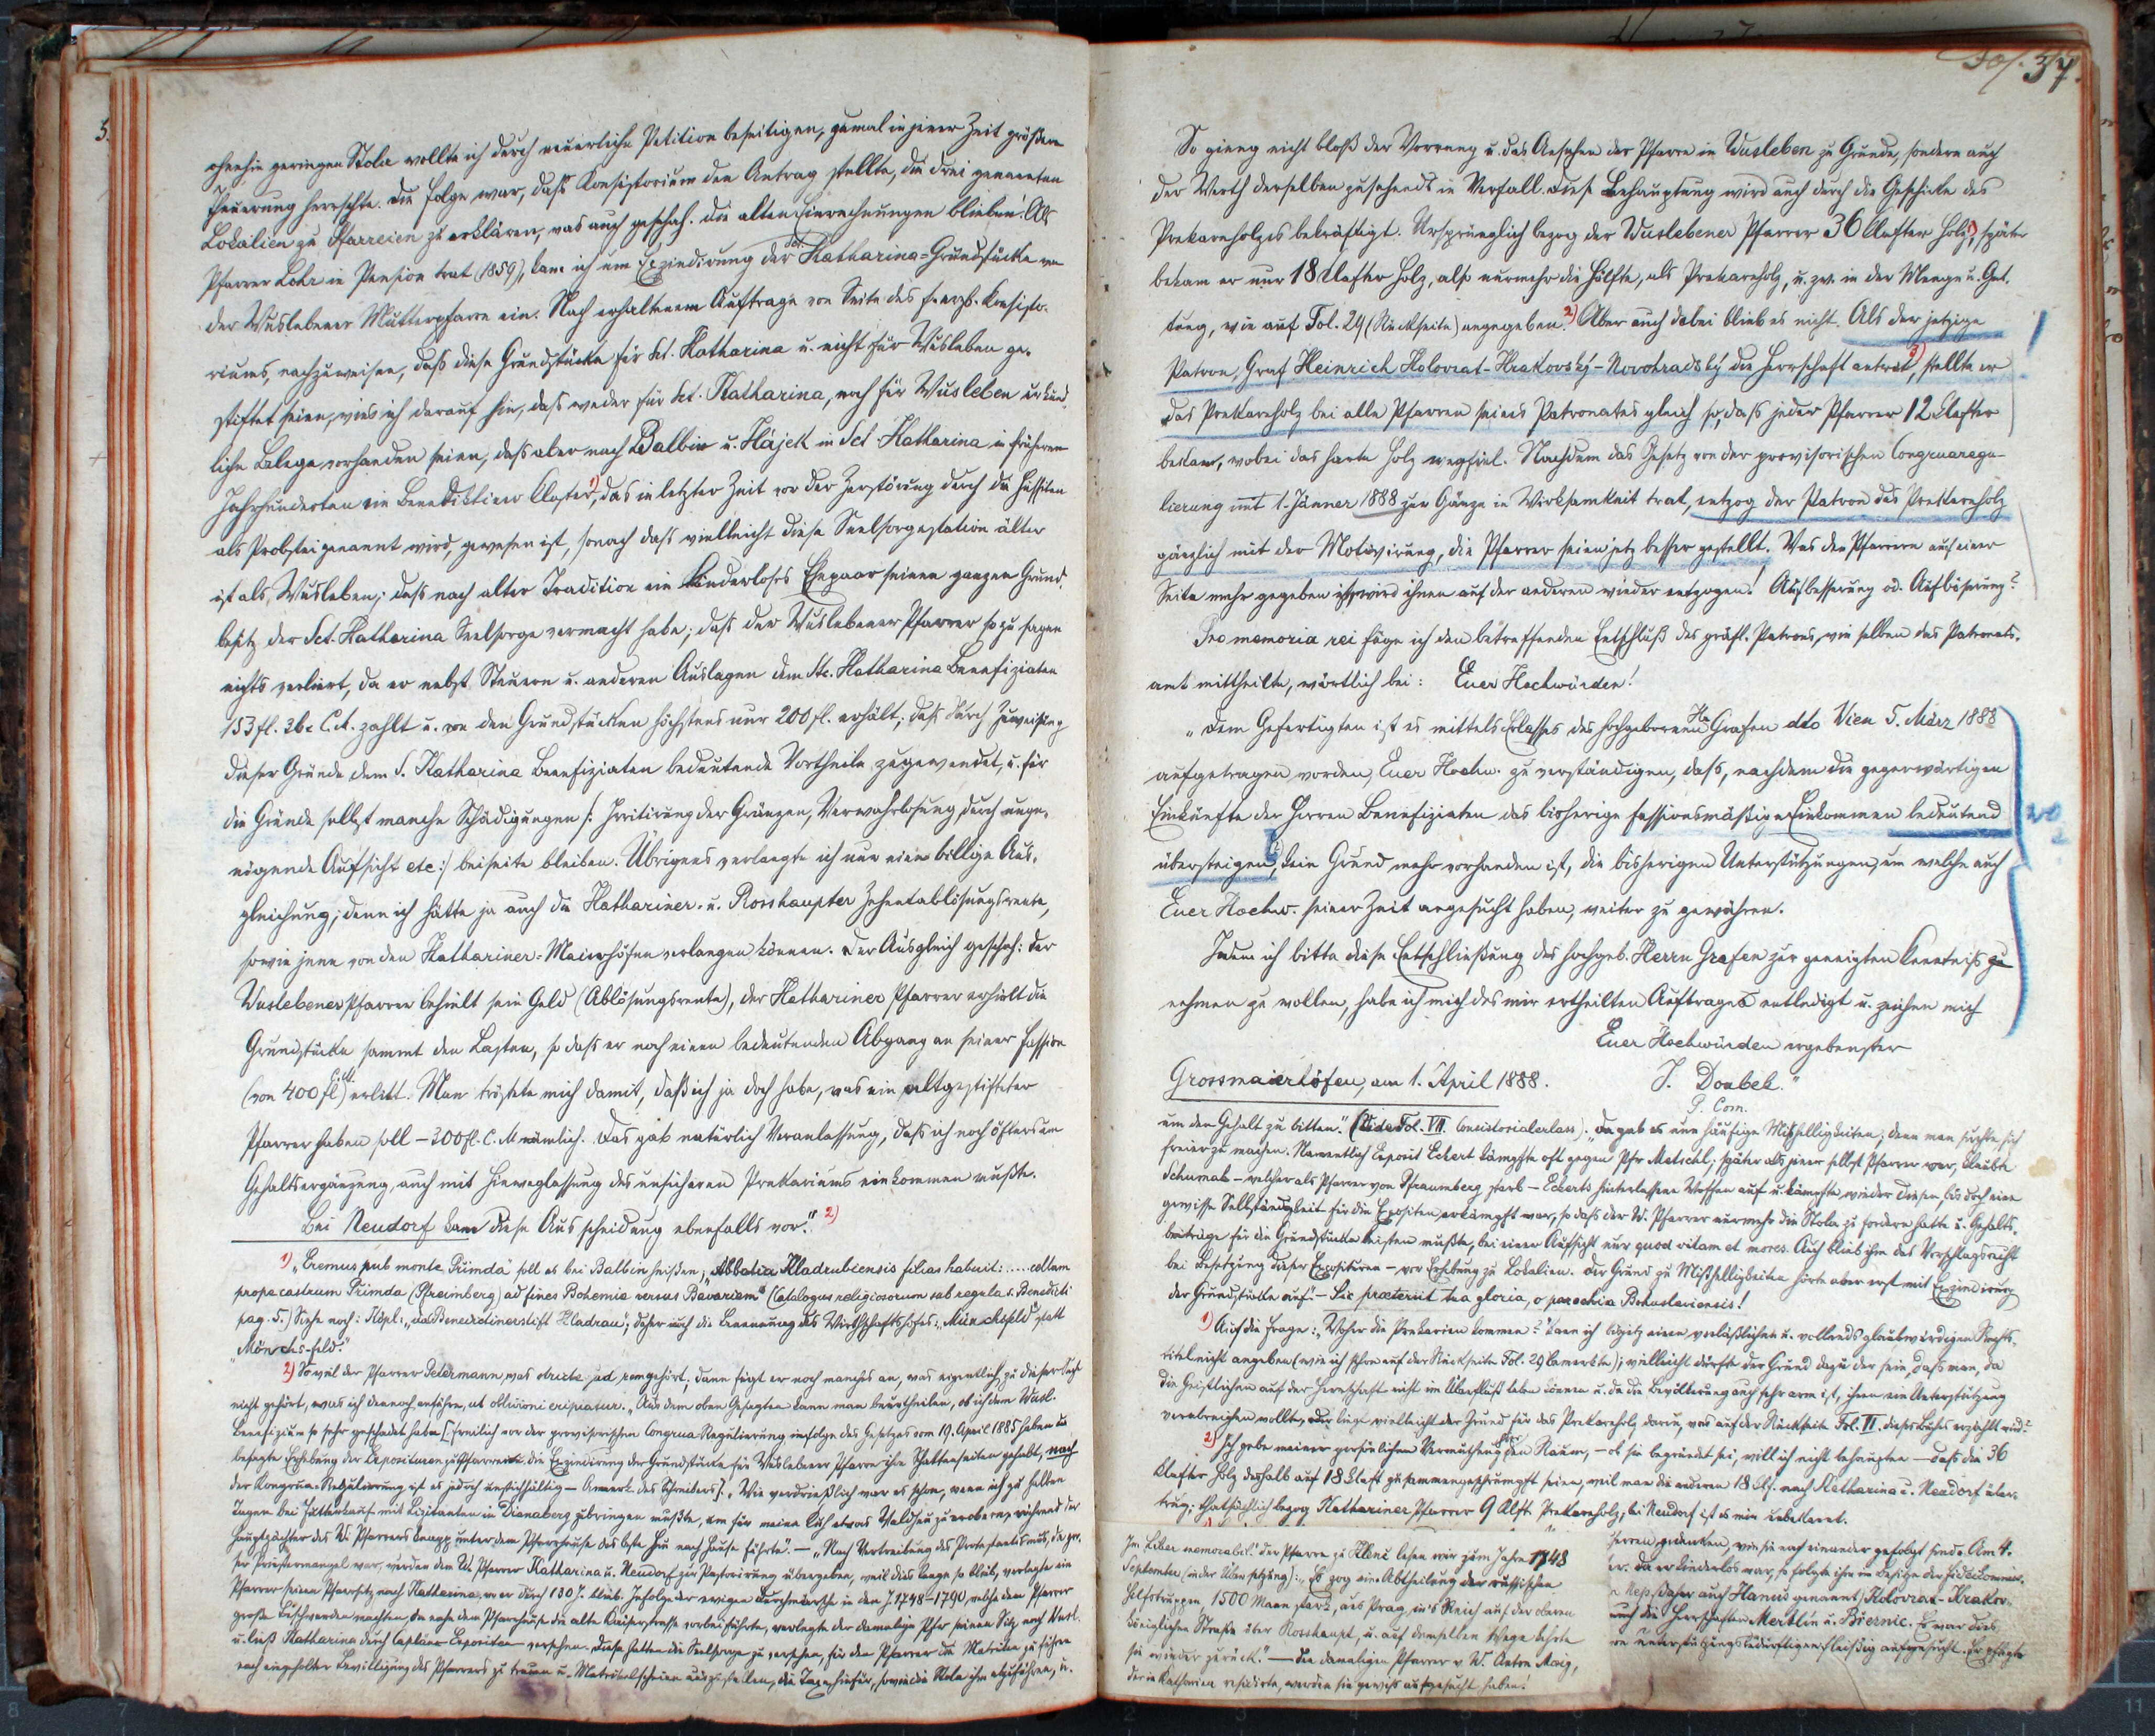 ohnehin geringen Stola wollte ich durch neuerliche Petition beseitigen, zumal in jener Zeit größere
Theuerung herrschte. Die Folge war, dass Konsistorium den Antrag stellte, die drei genannten
Lokalien zu Pfarreien zu erklären, was auch geschah. Die alten Hinrechnungen blieben. Als
Pfarrer Lohr in Pension trat (1859), kam ich um Exzindirung der Sct. Katharina-Grundstücke von
der Wuslebener Mutterpfarre ein. Nach erhaltenem Auftrage von Seite des f. erzb. Konsisto-
riums, nachzuweisen, dass diese Grundstücke für Sct. Katharina u. nicht für Wusleben ge-
stiftet seien, wies ich darauf hin, dass weder für Sct. Katharina, noch für Wusleben urkund-
liche Belege vorhanden seien, dass aber nach Balbin u. Hájek in Sct. Katharina in früheren
Jahrhunderten ein Benediktiner Kloster 1), das in letzter Zeit vor der Zerstörung durch die Hussiten
als Probstei genannt wird, gewesen ist, sonach dass vielleicht diese Seelsorgestation älter
ist als Wusleben; dass nach alter Tradition ein kinderloses Ehepaar seinen ganzen Grund-
besitz der Sct. Katharina Seelsorge vermacht habe; dass der Wuslebener Pfarrer so zu sagen
nichts verliert, da er nebst Steuern u. anderen Auslagen dem Sct. Katharina Benefiziaten
153 fl. 36 x C.M. zahlt u. von den Grundstücken höchstens nur 200 fl. erhält; dass durch Zuweisung
dieser Gründe dem S. Katharina Benefiziaten bedeutende Vortheile zugewendet, u. für
die Gründe selbst manche Schädigungen /: Irritirung der Gränzen, Verwahrlosung durch unge-
nügende Aufsicht etc :/ beiseite bleiben. Übrigens verlangte ich nur eine billige Aus-
gleichung; denn ich hätte ja auch die Kathariner- u. Rosshaupter Zehentablösungsrente,
sowie jene von den Kathariner-Maierhöfen verlangen können. Der Ausgleich geschah: der
Wuslebener Pfarrer behielt sein Geld (Ablösungsrente), der Kathariner Pfarrer erhielt die
Grundstücke sammt den Lasten, so dass er noch einen bedeutenden Abgang an seiner Fassion
(von 400 fl) erlitt. Man tröstete mich damit, daß ich ja doch habe, was ein altgestifteter
Pfarrer haben soll – 300 fl. C. M nämlich. Das gab natürlich Veranlassung, dass ich noch öfters um
Gehaltsergänzung, auch mit Hinweglassung des unsicheren Prekariums einkommen mußte.
Bei Neudorf kam diese Ausscheidung ebenfalls vor." 2)
1) "Eremus sub monte Přimda" soll es bei Balbin heißen; "Abbatia Kladrubiensis filias habuit: .... cellam
prope castrum Přimda (Pfreimberg) ad fines Bohemiae versus Bavariam" (Catalogus religiosorum sub regula s. Benedicti
pag. 5.) Siehe noch: Köpl: "das Benedictinerstift Kladrau"; daher auch die Benennung des Wirthschaftshofes: "Münchsfeld" statt
"Mönchs-feld".
2) Soweit der Pfarrer Petermann, was stricte ad rem gehört; dann fügt er noch manches an, was eigentlich zu dieser Sache
nicht gehört, was ich dennoch anführe, ut oblivioni eripiatur. "Aus dem oben Gesagten kann man beurtheilen, ob ich dem Wusl.
Benefizium so sehr geschadet habe [Freilich vor der provisorischen Congrua-Regulierung infolge des Gesetzes vom 19. April 1885 haben die
besagte Erhebung der Exposituren zu Pfarreien u. die Exzindirung der Grundstücke für Wuslebener Pfarre ihre Schattenseiten gehabt, nach
der Kongrua-Regulierung ist es jedoch unstichhältig – Anmerk. des Schreibers]. "Wie verdrießlich war es schon, wenn ich zu halben
Tagen bei Futterkauf mit Lizitanten in Dianaberg zubringen mußte, um für meine Kuh etwas Waldheu zu erobern, während der
Hauptpächter des W. Pfarrers knapp unter dem Pfarrhause das beste Heu nach Hause führte." – "Nach Vertreibung des Protestantismus, da gro-
ßer Priestermangel war, wurden dem W. Pfarrer Katharina u. Neudorf zur Pastorirung übergeben, weil dies lange so blieb, verlegte ein
Pfarrer seinen Pfarrsitz nach Katharina, wo er durch 130 J. blieb. Infolge der ewigen Durchmärsche in den J. 1748–1790, welche dem Pfarrer
große Beschwerden machten, da nahe dem Pfarrhause die alte Kaiserstrasse vorbei führte, verlegte der damalige Pfar. seinen Sitz nach Wusl.
u. ließ Katharina durch Capläne-Expositen versehen. Diese hatten die Seelsorge zu versehen, für den Pfarrer die Matriken zu führen
nach eingeholter Bewilligung des Pfarrers zu trauen u. Matrikelscheine auszustellen, die Taxen hiefür, sowie die Stola ihm abzuführen, u.
Fol. 37.
So gieng nicht bloß der Vorrang u. das Ansehen der Pfarre in Wusleben zu Grunde, sondern auch
der Werth derselben zusehends in Verfall. Diese Behauptung wird auch durch die Geschichte des
Prekarholzes bekräftigt. Ursprünglich bezog der Wuslebener Pfarrer 36 Klafter Holz 1), später
bekam er nur 18 Klafter Holz, also nurmehr die Hälfte, als Prekareholz, u. zw. in der Menge u. Gat-
tung, wie auf Fol. 29 (Rückseite) angegeben. 2) Aber auch dabei blieb es nicht. Als der jetzige
Patron, Graf Heinrich Kolovrat-Krakovský-Novohradský die Herrschaft antrat 3), stellte er
das Prekareholz bei alle Pfarren seines Patronates gleich so, dass jeder Pfarrer 12 Klafter
bekam, wobei das harte Holz wegfiel. Nachdem das Gesetz von der provisorischen Congruaregu-
lierung mit 1. Jänner 1888 zur Gänze in Wirksamkeit trat, entzog der Patron das Prekareholz
gänzlich mit der Motivirung, die Pfarrer seien jetz besser gestellt. Was den Pfarrern auf einer
Seite mehr gegeben ist, wird ihnen auf der anderen wieder entzogen! Aufbesserung od. Auflösung?
Pro memoria rei füge ich den betreffenden Entschluß des gräfl. Patrons, wie selben das Patronats-
amt mittheilte, wörtlich bei: Euer Hochwürden!
"Dem Gefertigten ist es mittels Erlasses des hochgeborenen Hn Grafen dto Wien 5. März 1888
aufgetragen worden, Euer Hochw. zu verständigen, dass, nachdem die gegenwärtigen
Einkünfte der Herren Benefiziaten das bisherige fassionsmäßige Einkommen bedeutend
übersteigen, kein Grund mehr vorhanden ist, die bisherigen Unterstützungen, um welche auch
Euer Hochw. seiner Zeit angesucht haben, weiter zu gewähren.
Indem ich bitte diese Entschließung des hochgeb. Herrn Grafen zur geneigten Kenntniß zu
nehmen zu wollen, habe ich mich des mir ertheilten Auftrages entledigt u. zeichne mich
Euer Hochwürden ergebenster
Grossmaierhöfen, am 1. April 1888. J. Doubek."
P. Com.
um den Gehalt zu bitten." (Vide Fol. VII Consistorialerlass). "Da gab es nun häufige Mißhelligkeiten; denn man suchte sich
freier zu machen. Namentlich Exposit Eckert kämpfte oft gegen Pfr Matschl; später als jener selbst Pfarrer war, klaubte
Schumak – welcher als Pfarrer von Pfraumberg starb – Eckerts hinterlassene Waffen auf u. kämpfte wieder diesen, bis doch eine
gewisse Selbständigkeit für die Expositen erkämpft war, so dass der W. Pfarrer nurmehr die Stola zu fordern hatte u. Gehalts-
beiträge für die Grundstücke leisten mußte, bei einer Aufsicht nur quod vitam et mores. Auch blieb ihm das Vorschlagsrecht
bei Besetzung dieser Exposituren – vor Erhebung zu Lokalien. Der Grund zu Mißhelligkeiten hörte aber erst mit Exzindirung
der Grundstücke auf." – Sic praeteriit tua gloria, o parochia Bohuslaviensis!
1) Auf die Frage: "Woher die Prekarien kommen?" kann ich bisjetz einen verläßlichen u. vollends glaubwürdigen Rechts-
titel nicht angeben (wie ich schon auf der Rückseite Fol. 29 bemerkte); vielleicht dürfte der Grund dazu der sein, dass man, da
die Geistlichen auf der Herrschaft nicht im Überfluß leben können u. da die Bevölkerung auch sehr arm ist, ihnen eine Unterstützung
verabreichen wollte, oder liegt vielleicht der Grund für das Prekareholz darin, was auf der Rückseite Fol. VI. dieses Buches erzählt wird?
2) Ich gebe meiner persönlichen Vermuthung hier den Raum, – ob sie begründet sei, will ich nicht behaupten – dass die 36
Klafter Holz deshalb auf 18 Klaft zusammengeschrumpft seien, weil man die anderen 18 Klf. nach Katharina u. Neudorf über-
trug; thatsächlich bezog Kathariner Pfarrer 9 Klft Prekareholz, bei Neudorf ist es mir unbekannt.
Im Liber memorabil. der Pfarre zu Kleně lesen wir zum Jahre 1748
September (in der Übersetzung): "Es zog eine Abtheilung der russischen
Hilfstruppen, 1500 Mann stark, aus Prag, in's Reich auf der oberen
königlichen Straße über Rosshaupt, u. auf demselben Wege kehrte
sie wieder zurück." – Die damaligen Pfarrer v. W. Anton
der in Katharina residirte, werden sie gewiss aufgesucht haben!
Herren gedenken, wie sie nach einander gefolgt sind. Am 4.
er. Da er kinderlos war, so folgte ihm im Besitze der Fideicommiss-
daher auch Hanuš genannt) Kolovrat-Krakov-
auch die Herrschaften Merklin u. Březnic. Es war dies
von Unterstützungsbedürftigen fleißig aufgesucht. Er pflegte